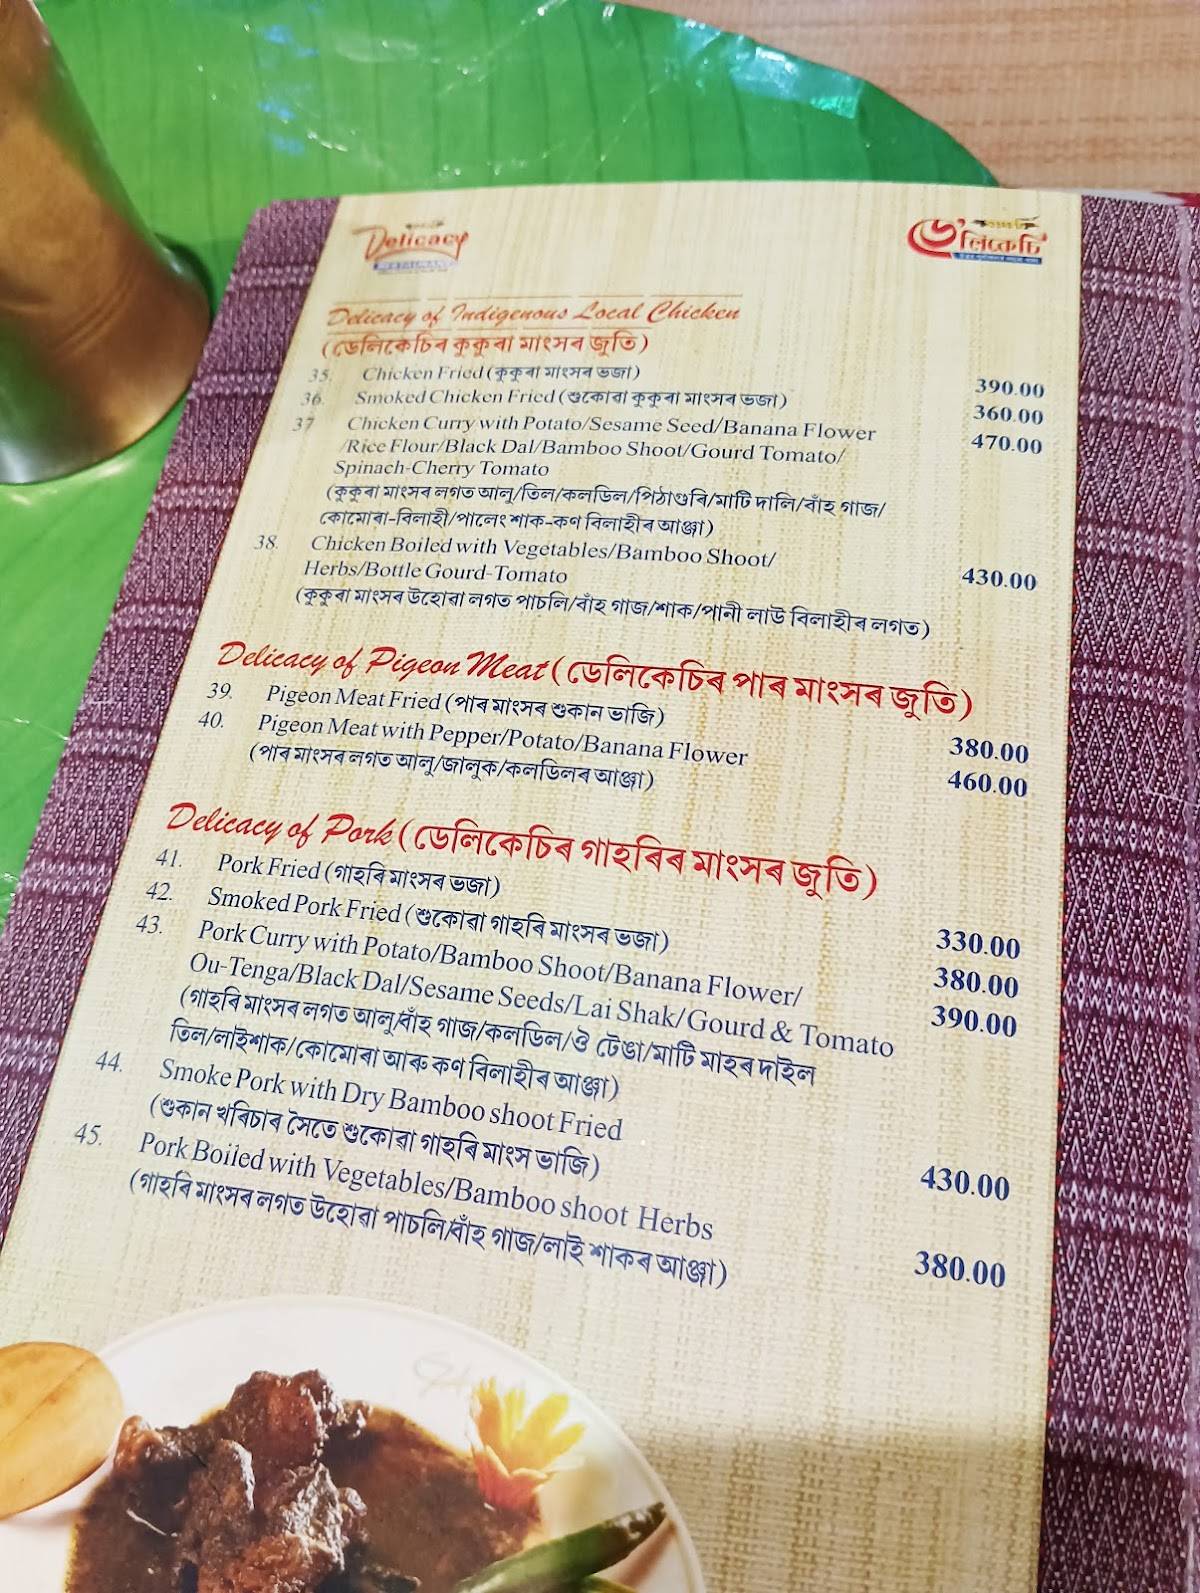 Delicacy
RESTAURANT
ডে'লিকেচি
Delicacy of Indigenous Local Chicken
(ডেলিকেচিৰ কুকুৰা মাংসৰ জুতি)
35. Chicken Fried (কুকুৰা মাংসৰ ভজা) 390.00
36. Smoked Chicken Fried (শুকোৱা কুকুৰা মাংসৰ ভজা) 360.00
37 Chicken Curry with Potato/Sesame Seed/Banana Flower 470.00
/Rice Flour/Black Dal/Bamboo Shoot/Gourd Tomato/
Spinach-Cherry Tomato
(কুকুৰা মাংসৰ লগত আলু/তিল/কলডিল/পিঠাগুৰি/মাটি দালি/বাঁহ গাজ/
কোমোৰা-বিলাহী/পালেং শাক-কণ বিলাহীৰ আঞ্জা)
38. Chicken Boiled with Vegetables/Bamboo Shoot/
Herbs/Bottle Gourd-Tomato 430.00
(কুকুৰা মাংসৰ উহোৱা লগত পাচলি/বাঁহ গাজ/শাক/পানী লাউ বিলাহীৰ লগত)
Delicacy of Pigeon Meat (ডেলিকেচিৰ পাৰ মাংসৰ জুতি)
39. Pigeon Meat Fried (পাৰ মাংসৰ শুকান ভাজি) 380.00
40. Pigeon Meat with Pepper/Potato/Banana Flower 460.00
(পাৰ মাংসৰ লগত আলু/জালুক/কলডিলৰ আঞ্জা)
Delicacy of Pork (ডেলিকেচিৰ গাহৰিৰ মাংসৰ জুতি)
41. Pork Fried (গাহৰি মাংসৰ ভজা) 330.00
42. Smoked Pork Fried (শুকোৱা গাহৰি মাংসৰ ভজা) 380.00
43. Pork Curry with Potato/Bamboo Shoot/Banana Flower/ 390.00
Ou-Tenga/Black Dal/Sesame Seeds/Lai Shak/Gourd & Tomato
(গাহৰি মাংসৰ লগত আলু/বাঁহ গাজ/কলডিল/ঔ টেঙা/মাটি মাহৰ দাইল
তিল/লাইশাক/কোমোৰা আৰু কণ বিলাহীৰ আঞ্জা)
44. Smoke Pork with Dry Bamboo shoot Fried 430.00
(শুকান খৰিচাৰ সৈতে শুকোৱা গাহৰি মাংস ভাজি)
45. Pork Boiled with Vegetables/Bamboo shoot Herbs 380.00
(গাহৰি মাংসৰ লগত উহোৱা পাচলি/বাঁহ গাজ/লাই শাকৰ আঞ্জা)